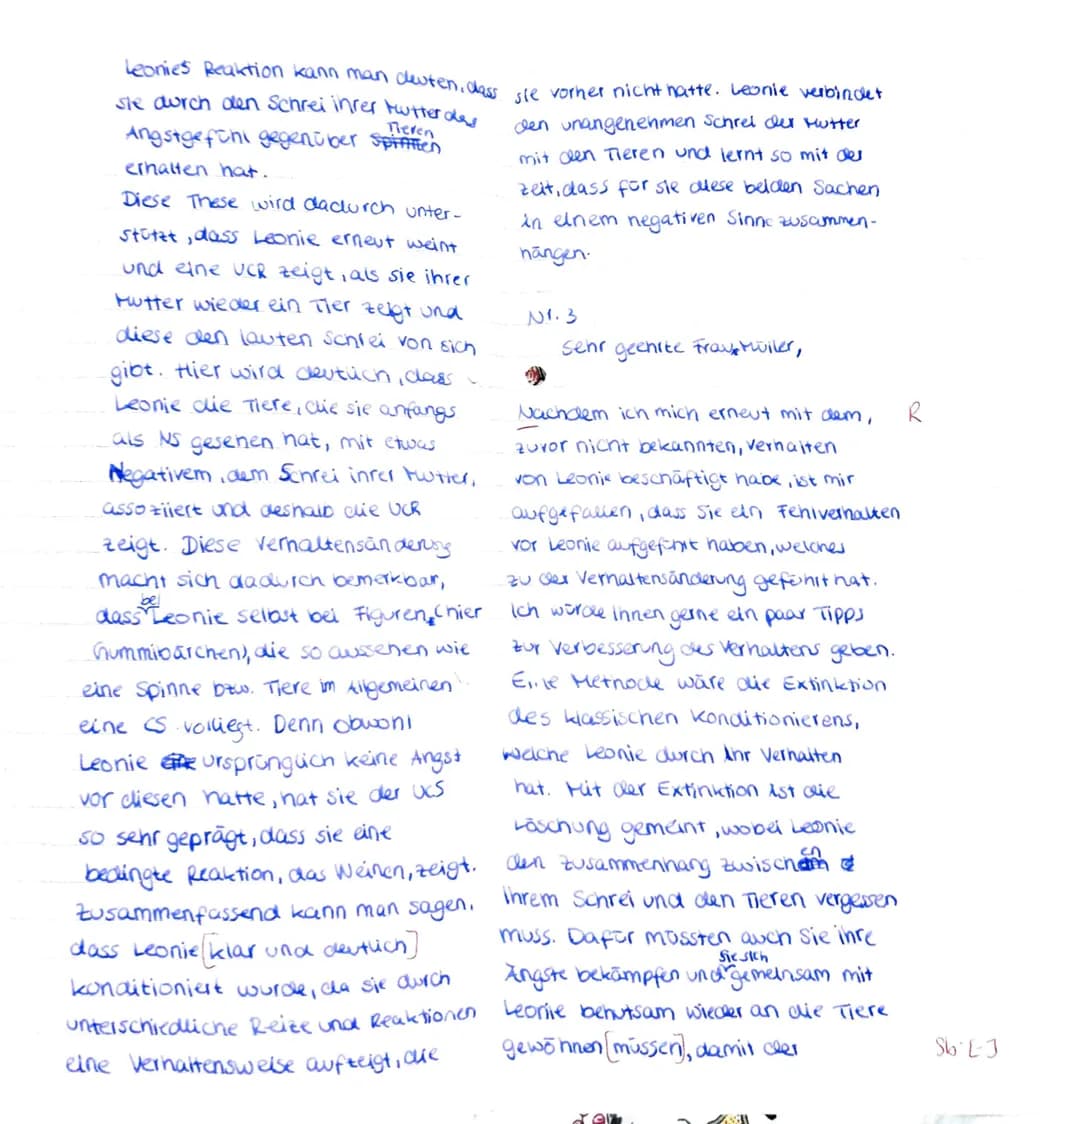 Leonies Reaktion kann man deuten, dass
sie durch den Schrei ihrer Mutter das
Angstgefühl gegenüber Tieren
erhalten hat.
Diese These wird dadurch unter-
stützt, dass Leonie erneut weint
und eine UCR zeigt, als sie ihrer
Mutter wieder ein Tier zeigt und
diese den lauten Schrei von sich
gibt. Hier wird deutlich, dass
Leonie die Tiere, die sie anfangs
als NS gesehen hat, mit etwas
Negativem, dem Schrei ihrer Mutter,
assoziiert und deshalb die UCR
zeigt. Diese Verhaltensänderung
macht sich dadurch bemerkbar,
dass bei Leonie selbst bei Figuren, (hier
Gummibärchen), die so aussehen wie
eine Spinne bzw. Tiere im Allgemeinen
eine CS vorliegt. Denn obwohl
Leonie ursprünglich keine Angst
vor diesen hatte, hat sie der UCS
so sehr geprägt, dass sie eine
bedingte Reaktion, das Weinen, zeigt.
Zusammenfassend kann man sagen,
dass Leonie [klar und deutlich]
konditioniert wurde, da sie durch
unterschiedliche Reize und Reaktionen
eine Verhaltensweise aufzeigt, die
sie vorher nicht hatte. Leonie verbindet
den unangenehmen Schrei der Mutter
mit den Tieren und lernt so mit der
Zeit, dass für sie diese beiden Sachen
in einem negativen Sinne zusammen-
hängen.
Nr. 3
Sehr geehrte Frau Müller,
Nachdem ich mich erneut mit dem, R
zuvor nicht bekannten, Verhalten
von Leonie beschäftigt habe, ist mir
aufgefallen, dass Sie ein Fehlverhalten
vor Leonie aufgeführt haben, welches
zu der Verhaltensänderung geführt hat.
Ich würde Ihnen gerne ein paar Tipps
zur Verbesserung des Verhaltens geben.
Eine Methode wäre die Extinktion
des klassischen Konditionierens,
welche Leonie durch Ihr Verhalten
hat. Mit der Extinktion ist die
Löschung gemeint, wobei Leonie
den Zusammenhang zwischen
Ihrem Schrei und den Tieren vergessen
muss. Dafür müssten auch Sie ihre
Ängste bekämpfen und Sie sich gemeinsam mit
Leonie behutsam wieder an die Tiere
gewöhnen [müssen], damit der Sb [-]